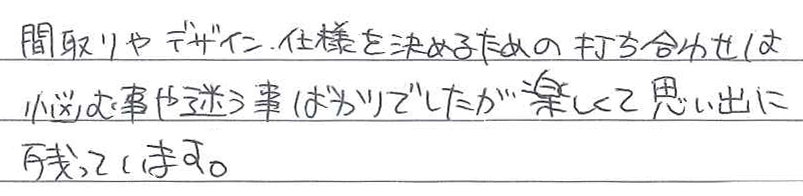 間取りやデザイン.仕様を決めるための打ち合わせは
悩む事や迷う事ばかりでしたが楽しくて思い出に
残っています。